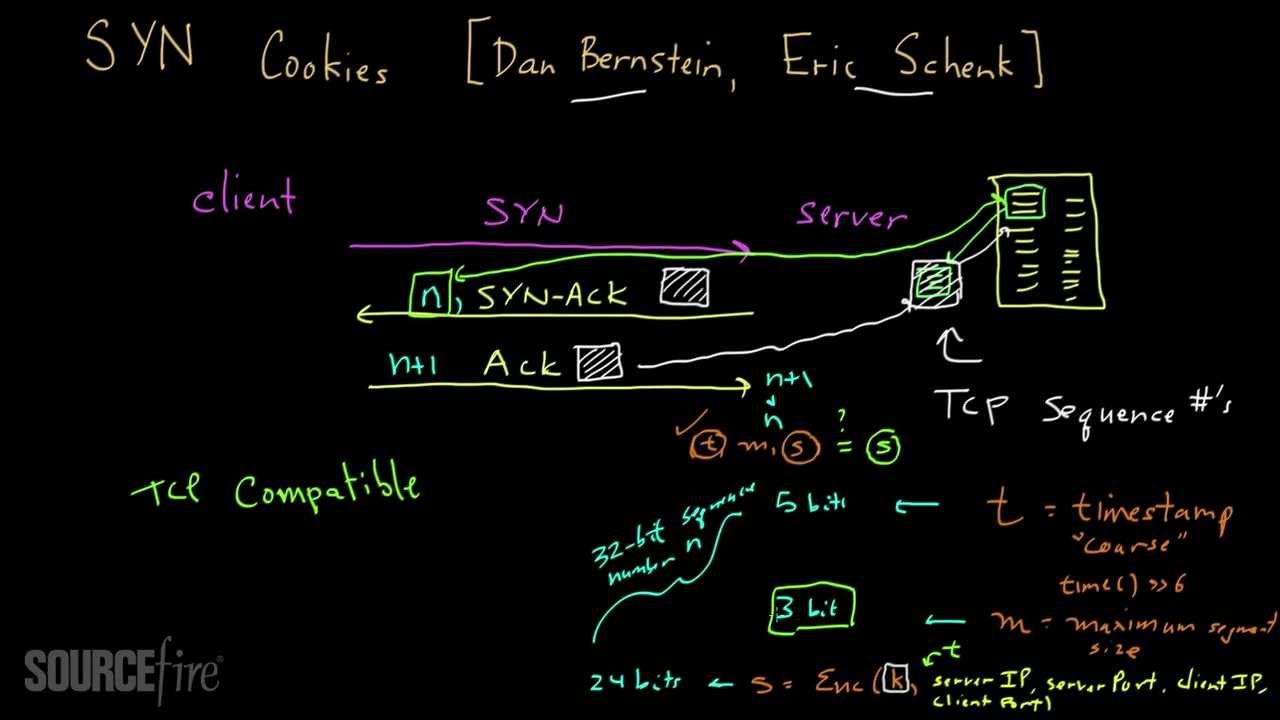 SYN Cookies [Dan Bernstein, Eric Schenk]
client SYN server
n, SYN-Ack
n+1 Ack
n+1
n
TCP Sequence #'s
?
t, m, s = s
TCP Compatible
32-bit sequence
number n
5 bits ← t = timestamp
"coarse"
time() >> 6
3 bit ← m = maximum segment
size
t
24 bits ← s = Enc(k, server IP, server Port, client IP,
client Port)
SOURCEfire®